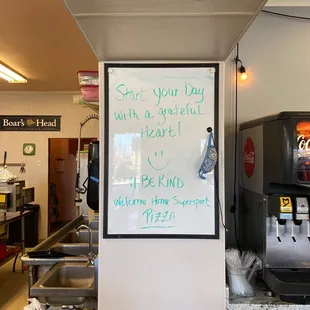 Boar's Head
Start your Day
with a grateful
Heart!
# BE KIND
Welcome Home Supersport
PIZZA
Coca-Cola